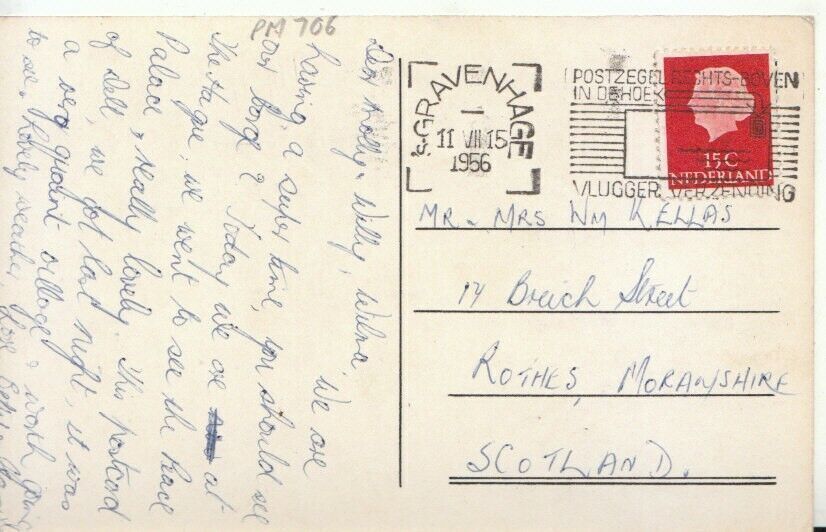 PM 706
Dear Molly, Willy, Wilma
We are
having a super time, you should see
our barge? Today we are at
The Hague, we went to see the Peace
Palace & really lovely. This postcard
of Dell, we got last night, it was
a very quaint village & worth going
to see. Lovely weather, Love
's-GRAVENHAGE
11 VII 15
1956
POSTZEGEL RECHTS-BOVEN
IN DE HOEK
VLUGGER VERZENDING
15 C
NEDERLAND
MR & MRS WM KELLAS
14 Breich Street
ROTHES, MORAYSHIRE
SCOTLAND.